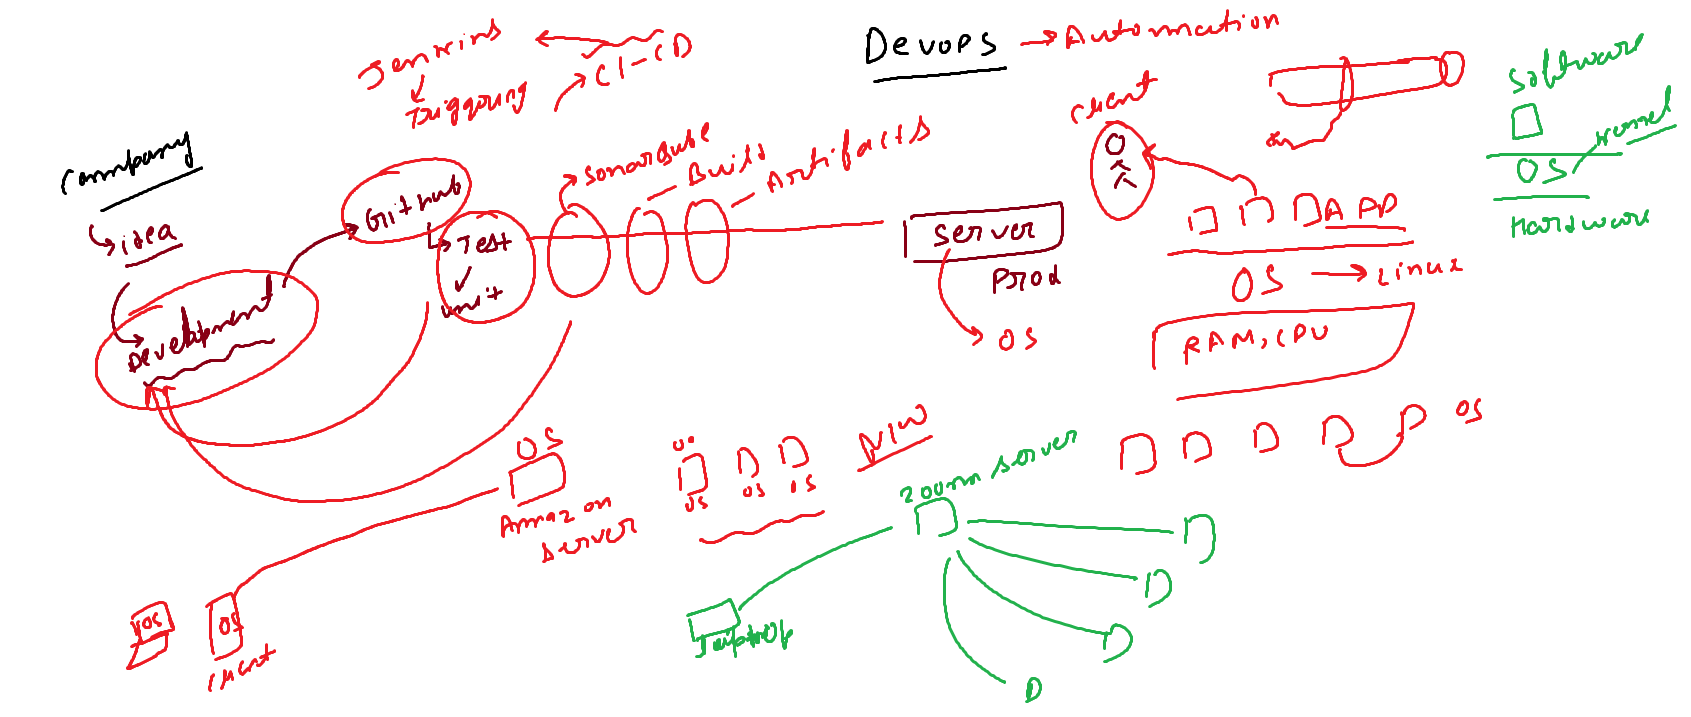 Devops → Automation
Jenkins
CI-CD
Triggering
Company
idea
Development
GitHub
Test
unit
SonarQube
Build
Artifacts
server
Prod
OS
client
APP
OS → Linux
RAM, CPU
OS
software
OS
kernel
Hardware
OS
Amazon
server
OS
OS
OS
NIW
zoom server
OS
OS
client